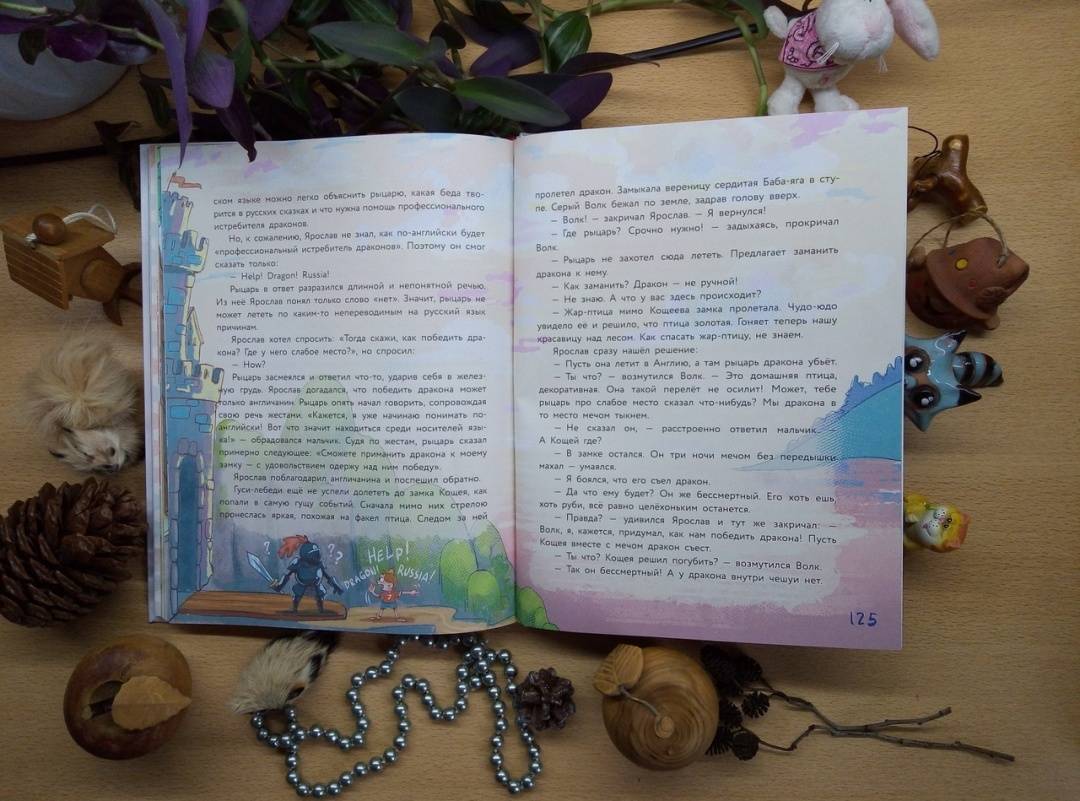 ском языке можно легко объяснить рыцарю, какая беда тво-
рится в русских сказках и что нужна помощь профессионального
истребителя драконов.
Но, к сожалению, Ярослав не знал, как по-английски будет
«профессиональный истребитель драконов». Поэтому он смог
сказать только:
— Help! Dragon! Russia!
Рыцарь в ответ разразился длинной и непонятной речью.
Из неё Ярослав понял только слово «нет». Значит, рыцарь не
может лететь по каким-то непереводимым на русский язык
причинам.
Ярослав хотел спросить: «Тогда скажи, как победить дра-
кона? Где у него слабое место?», но спросил:
— How?
Рыцарь засмеялся и ответил что-то, ударив себя в желез-
ную грудь. Ярослав догадался, что победить дракона может
только англичанин. Рыцарь опять начал говорить, сопровождая
свою речь жестами. «Кажется, я уже начинаю понимать по-
английски! Вот что значит находиться среди носителей язы-
ка!» — обрадовался мальчик. Судя по жестам, рыцарь сказал
примерно следующее: «Сможете приманить дракона к моему
замку — с удовольствием одержу над ним победу».
Ярослав поблагодарил англичанина и поспешил обратно.
Гуси-лебеди ещё не успели долететь до замка Кощея, как
попали в самую гущу событий. Сначала мимо них стрелою
пронеслась яркая, похожая на факел птица. Следом за ней
? ? ?
HELP!
DRAGON! RUSSIA!
пролетел дракон. Замыкала вереницу сердитая Баба-яга в сту-
пе. Серый Волк бежал по земле, задрав голову вверх.
— Волк! — закричал Ярослав. — Я вернулся!
— Где рыцарь? Срочно нужно! — задыхаясь, прокричал
Волк.
— Рыцарь не захотел сюда лететь. Предлагает заманить
дракона к нему.
— Как заманить? Дракон — не ручной!
— Не знаю. А что у вас здесь происходит?
— Жар-птица мимо Кощеева замка пролетала. Чудо-юдо
увидело её и решило, что птица золотая. Гоняет теперь нашу
красавицу над лесом. Как спасать жар-птицу, не знаем.
Ярослав сразу нашёл решение:
— Пусть она летит в Англию, а там рыцарь дракона убьёт.
— Ты что? — возмутился Волк. — Это домашняя птица,
декоративная. Она такой перелёт не осилит! Может, тебе
рыцарь про слабое место сказал что-нибудь? Мы дракона в
то место мечом тыкнем.
— Не сказал он, — расстроенно ответил мальчик. —
А Кощей где?
— В замке остался. Он три ночи мечом без передышки
махал — умаялся.
— Я боялся, что его съел дракон.
— Да что ему будет? Он же бессмертный. Его хоть ешь,
хоть руби, всё равно целёхоньким останется.
— Правда? — удивился Ярослав и тут же закричал: —
Волк, я, кажется, придумал, как нам победить дракона! Пусть
Кощея вместе с мечом дракон съест.
— Ты что? Кощея решил погубить? — возмутился Волк.
— Так он бессмертный! А у дракона внутри чешуи нет.
125